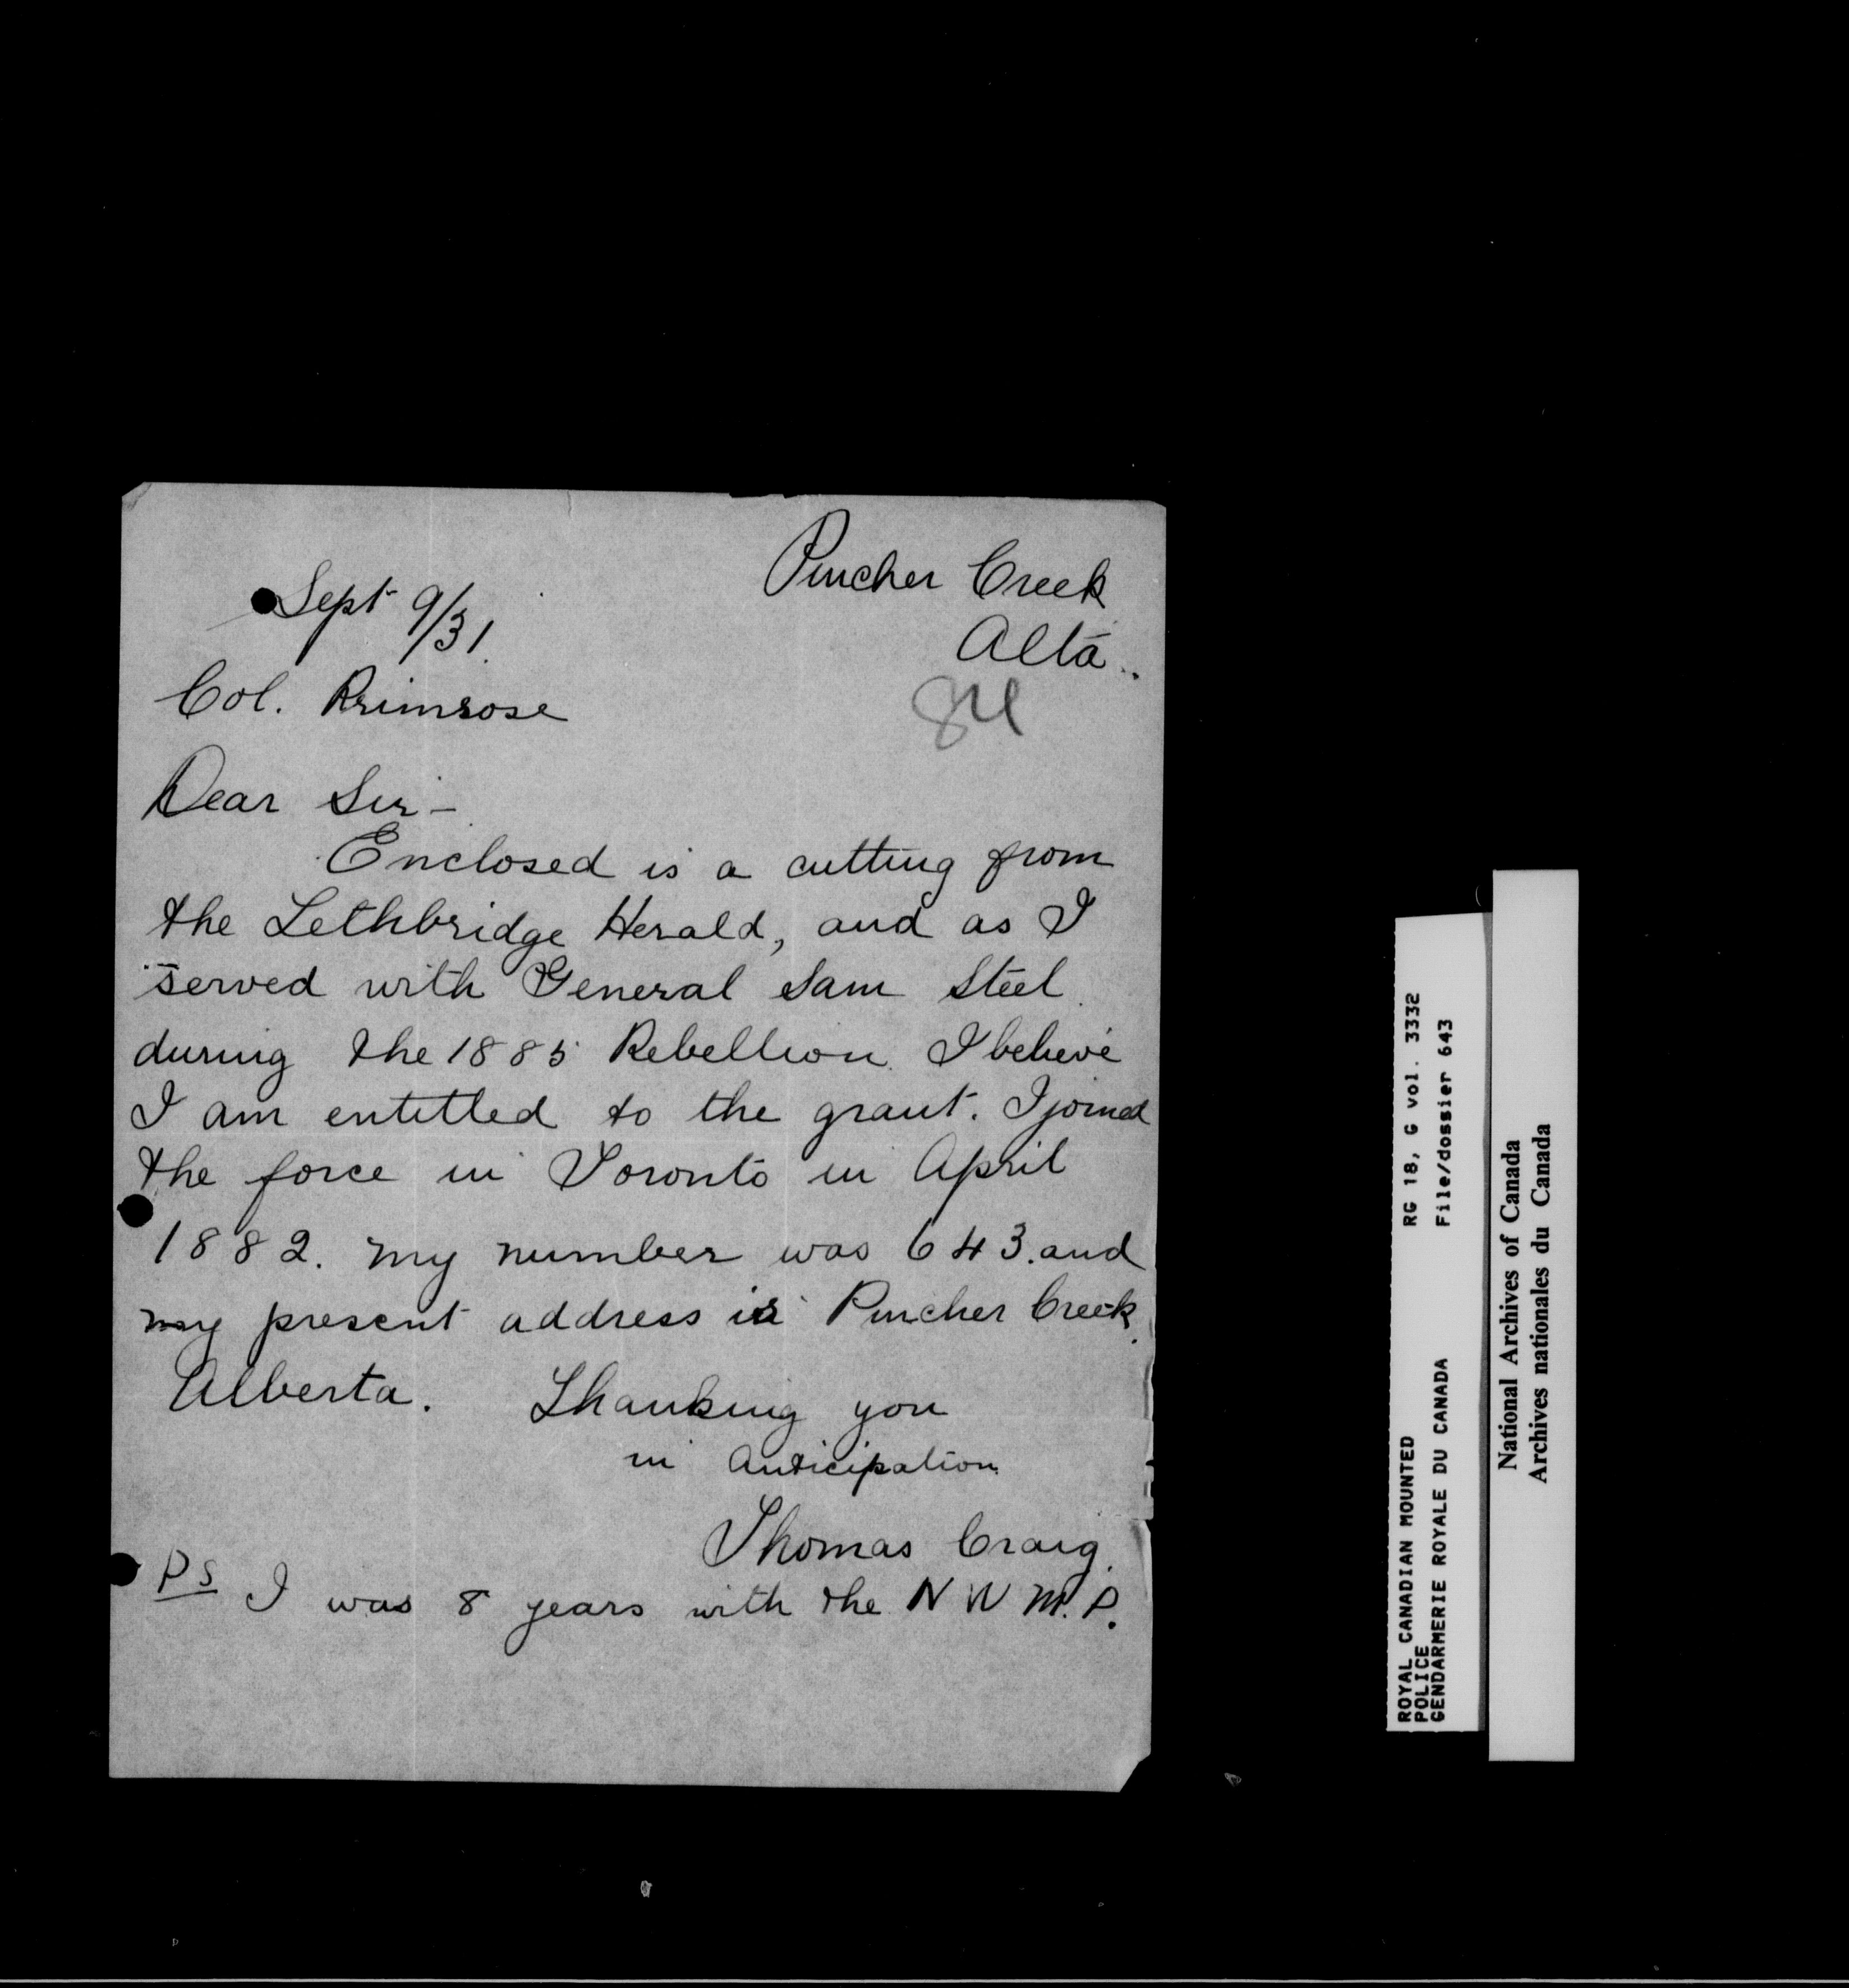 Pincher Creek
Alta.
Sept 9/31.
84
Col. Primrose
Dear Sir -
Enclosed is a cutting from
the Lethbridge Herald, and as I
served with General Sam Steel
during the 1885 Rebellion. I believe
I am entitled to the grant. I joined
the force in Toronto in April
1882. my number was 643. and
my present address is Pincher Creek.
Alberta. Thanking you
in anticipation
Thomas Craig.
Ps I was 8 years with the N W M. P.
ROYAL CANADIAN MOUNTED RG 18, G vol. 3332
POLICE
GENDARMERIE ROYALE DU CANADA File/dossier 643
National Archives of Canada
Archives nationales du Canada